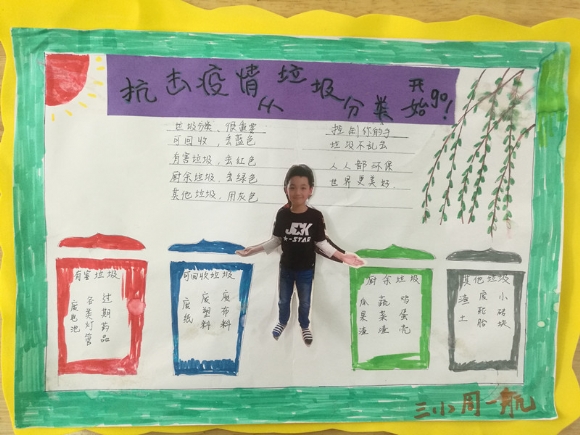 抗击疫情 从垃圾分类 开始go!
垃圾分类,很重要
可回收,去蓝色
有害垃圾,去红色
厨余垃圾,去绿色
其他垃圾,用灰色
你的手
垃圾不乱丢
人人都环保
世界更美好.
JEX
STAR
有害垃圾
废电池
各类灯管
过期药品
可回收垃圾
废纸
废塑料
废布料
厨余垃圾
瓜果渣
蔬菜渣
鸡蛋壳
其他垃圾
渣土
废轮胎
小砖块
三小周一航